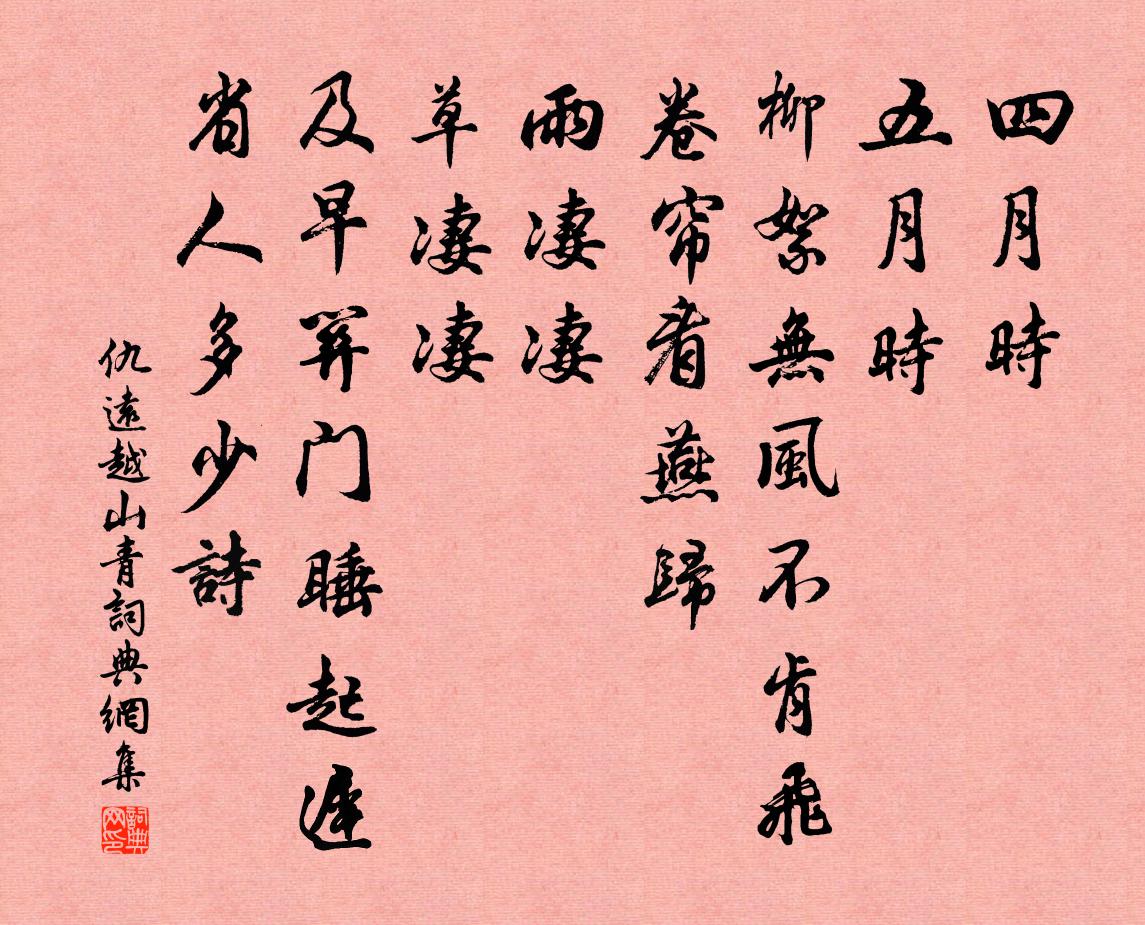 四月時
五月時
柳絮無風不肯飛
卷帘看燕歸
雨凄凄
草凄凄
及早関门睡起遲
省人多少詩
仇遠越山青詞典網集
詞典网印